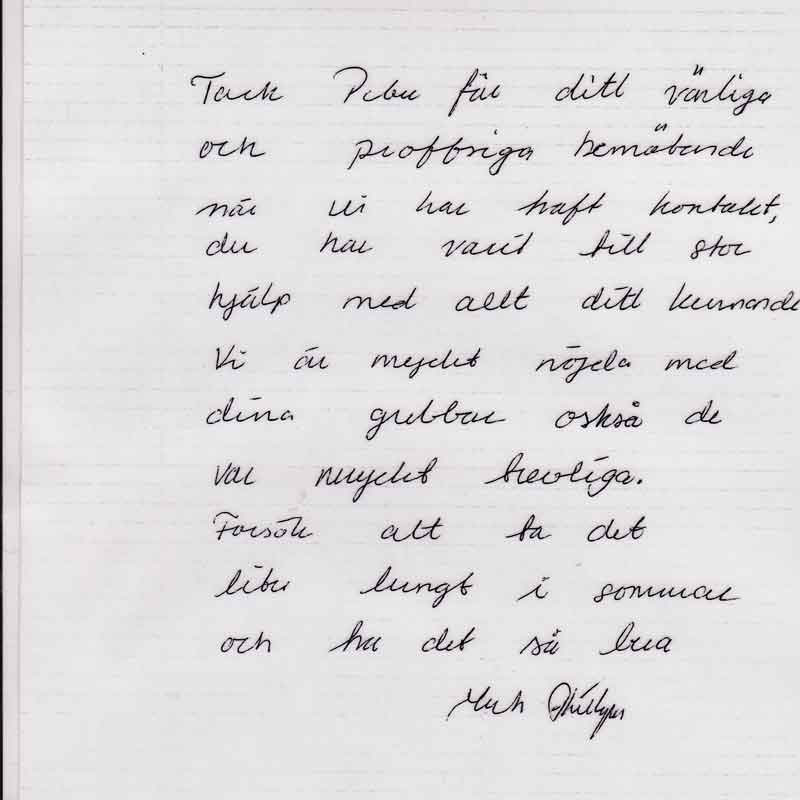 Tack Peter för ditt vänliga
och proffsiga bemötande
när vi har haft kontakt,
du har varit till stor
hjälp med allt ditt kunnande
Vi är mycket nöjda med
dina grabbar också de
var mycket trevliga.
Försök att ta det
lite lungt i sommar
och ha det så bra